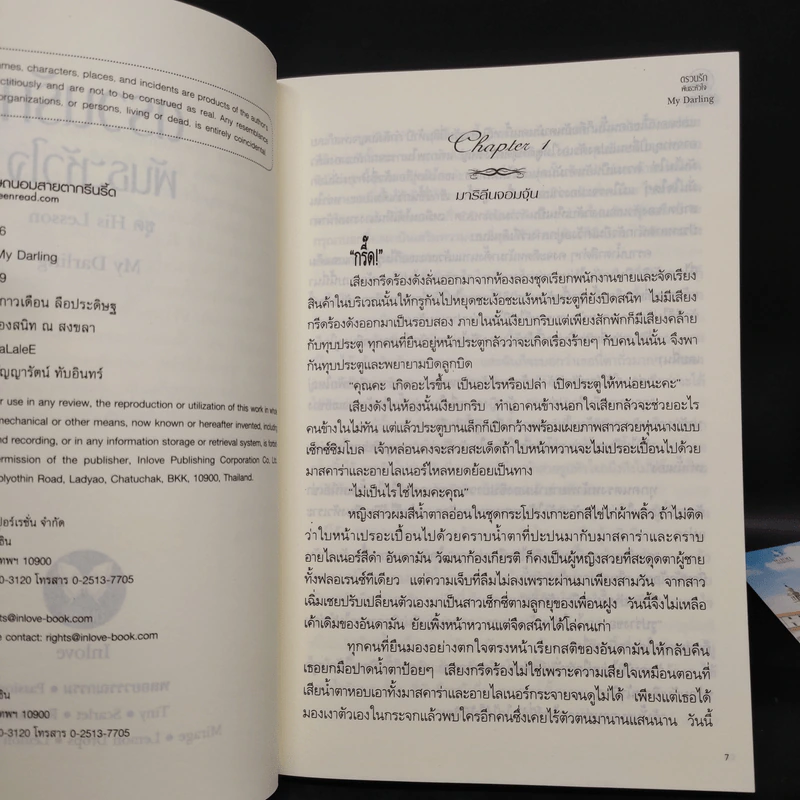 characters, places, and incidents are products of the author's
and are not to be construed as real. Any resemblance
organizations, or persons, living or dead, is entirely coincidental.
eenread.com
6
My Darling
9
กาวเดือน ลือประดิษฐ
องสนิท ณ สงขลา
aLaleE
ัญญารัตน์ ทับอินทร์
r use in any review, the reproduction or utilization of this work in
mechanical or other means, now known or hereafter invented,
nd recording, or in any information storage or retrieval system, is
ermission of the publisher, Inlove Publishing Corporation Co.
olyothin Road, Ladyao, Chatuchak, BKK, 10900, Thailand.
ปอร์เรชั่น จำกัด
ชิน
ทพฯ 10900
0-3120 โทรสาร 0-2513-7705
hts@inlove-book.com
e contact: rights@inlove-book.com
ชิน
ทพฯ 10900
0-3120 โทรสาร 0-2513-7705
ตรวนรัก
พันธะหัวใจ
My Darling
Chapter 1
มาริลีนจอมจุ้น
“กรี๊ด!”
เสียงกรีดร้องดังลั่นออกมาจากห้องลองชุดเรียกพนักงานขายและจัดเรียง
สินค้าในบริเวณนั้นให้กรูกันไปหยุดชะเง้อชะแง้หน้าประตูที่ยังปิดสนิท ไม่มีเสียง
กรีดร้องดังออกมาเป็นรอบสอง ภายในนั้นเงียบกริบแต่เพียงสักพักก็มีเสียงคล้าย
กับทุบประตู ทุกคนที่ยืนอยู่หน้าประตูกลัวว่าจะเกิดเรื่องร้ายๆ กับคนในนั้น จึงพา
กันทุบประตูและพยายามบิดลูกบิด
“คุณคะ เกิดอะไรขึ้น เป็นอะไรหรือเปล่า เปิดประตูให้หน่อยนะคะ”
เสียงดังในห้องนั้นเงียบกริบ ทำเอาคนข้างนอกใจเสียกลัวจะช่วยอะไร
คนข้างในไม่ทัน แต่แล้วประตูบานเล็กก็เปิดกว้างพร้อมเผยภาพสาวสวยหุ่นนางแบบ
เซ็กซ์ซิมโบล เจ้าหล่อนคงจะสวยสะเด็ดถ้าใบหน้าหวานจะไม่เปรอะเปื้อนไปด้วย
มาสคาร่าและอายไลเนอร์ไหลหยดย้อยเป็นทาง
“ไม่เป็นไรใช่ไหมคะคุณ”
หญิงสาวผมสีน้ำตาลอ่อนในชุดกระโปรงเกาะอกสีไข่ไก่ผ้าพลิ้ว ถ้าไม่ติด
ว่าใบหน้าเปรอะเปื้อนไปด้วยคราบน้ำตาที่ปะปนมากับมาสคาร่าและคราบ
อายไลเนอร์สีดำ อันดามัน วัฒนาก้องเกียรติ ก็คงเป็นผู้หญิงสวยที่สะดุดตาผู้ชาย
ทั้งฟลอเรนซ์ทีเดียว แต่ความเจ็บที่ลืมไม่ลงเพราะผ่านมาเพียงสามวัน จากสาว
เฉิ่มเชยปรับเปลี่ยนตัวเองมาเป็นสาวเซ็กซี่ตามลูกยุของเพื่อนฝูง วันนี้จึงไม่เหลือ
เค้าเดิมของอันดามัน ยัยเพิ้งหน้าหวานแต่จืดสนิทได้โล่คนเก่า
ทุกคนที่ยืนมองอย่างตกใจตรงหน้าเรียกสติของอันดามันให้กลับคืน
เธอยกมือปาดน้ำตาป้อยๆ เสียงกรีดร้องไม่ใช่เพราะความเสียใจเหมือนตอนที่
เสียน้ำตาหอบเอาทั้งมาสคาร่าและอายไลเนอร์กระจายจนดูไม่ได้ เพียงแต่เธอได้
มองเงาตัวเองในกระจกแล้วพบใครอีกคนซึ่งเคยไร้ตัวตนมานานแสนนาน วันนี้
7